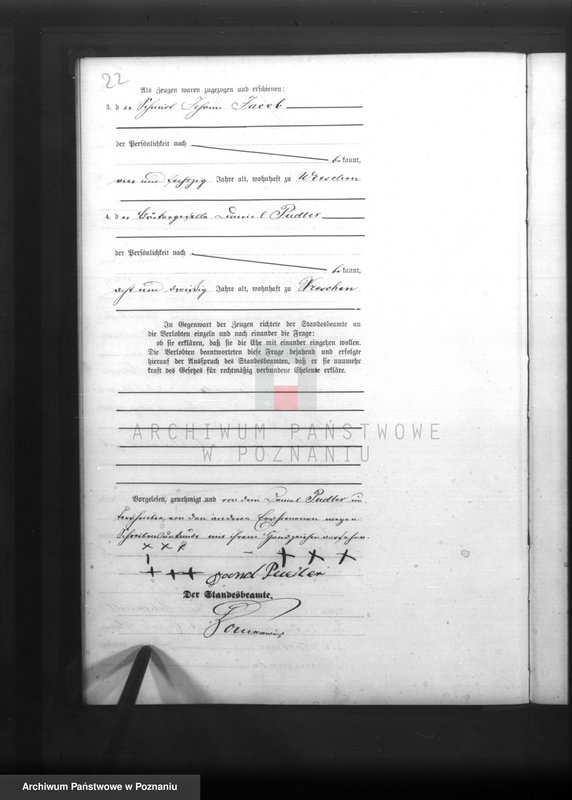 22
Als Zeugen waren zugezogen und erschienen:
3. der Schmied Johann Jacob
der Persönlichkeit nach
bekannt,
vier und sechszig Jahre alt, wohnhaft zu Wreschen
4. der Böttchergeselle Daniel Pudler
der Persönlichkeit nach
bekannt,
acht und dreißig Jahre alt, wohnhaft zu Wreschen
In Gegenwart der Zeugen richtete der Standesbeamte an
die Verlobten einzeln und nach einander die Frage:
ob sie erklären, daß sie die Ehe mit einander eingehen wollen.
Die Verlobten beantworteten diese Frage bejahend und erfolgte
hierauf der Ausspruch des Standesbeamten, daß er sie nunmehr
kraft des Gesetzes für rechtmäßig verbundene Eheleute erkläre.
ARCHIWUM PAŃSTWOWE
W POZNANIU
Vorgelesen, genehmigt und von dem Daniel Pudler un
terschrieben, von den anderen Erschienenen wegen
Schreibensunkunde mit ihrem Handzeichen versehen.
+ + +
+ + + +++ Pudler
Der Standesbeamte.
Archiwum Państwowe w Poznaniu